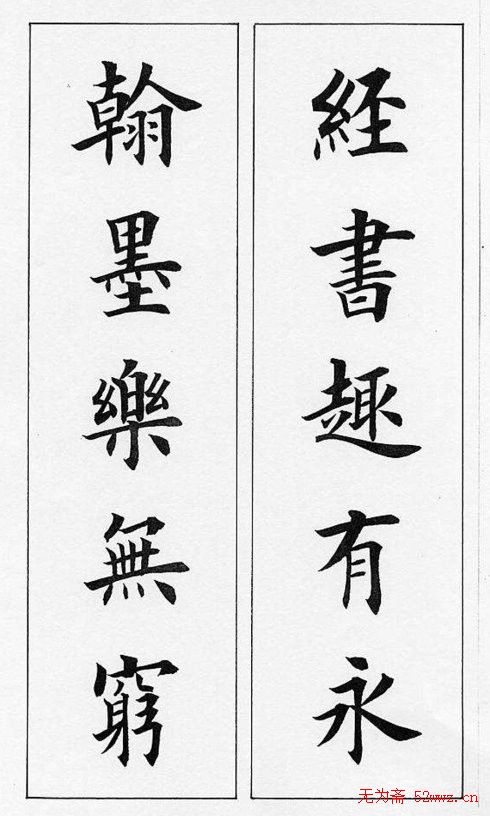 經書趣有永
翰墨樂無窮
无为斋 52wwz.cn